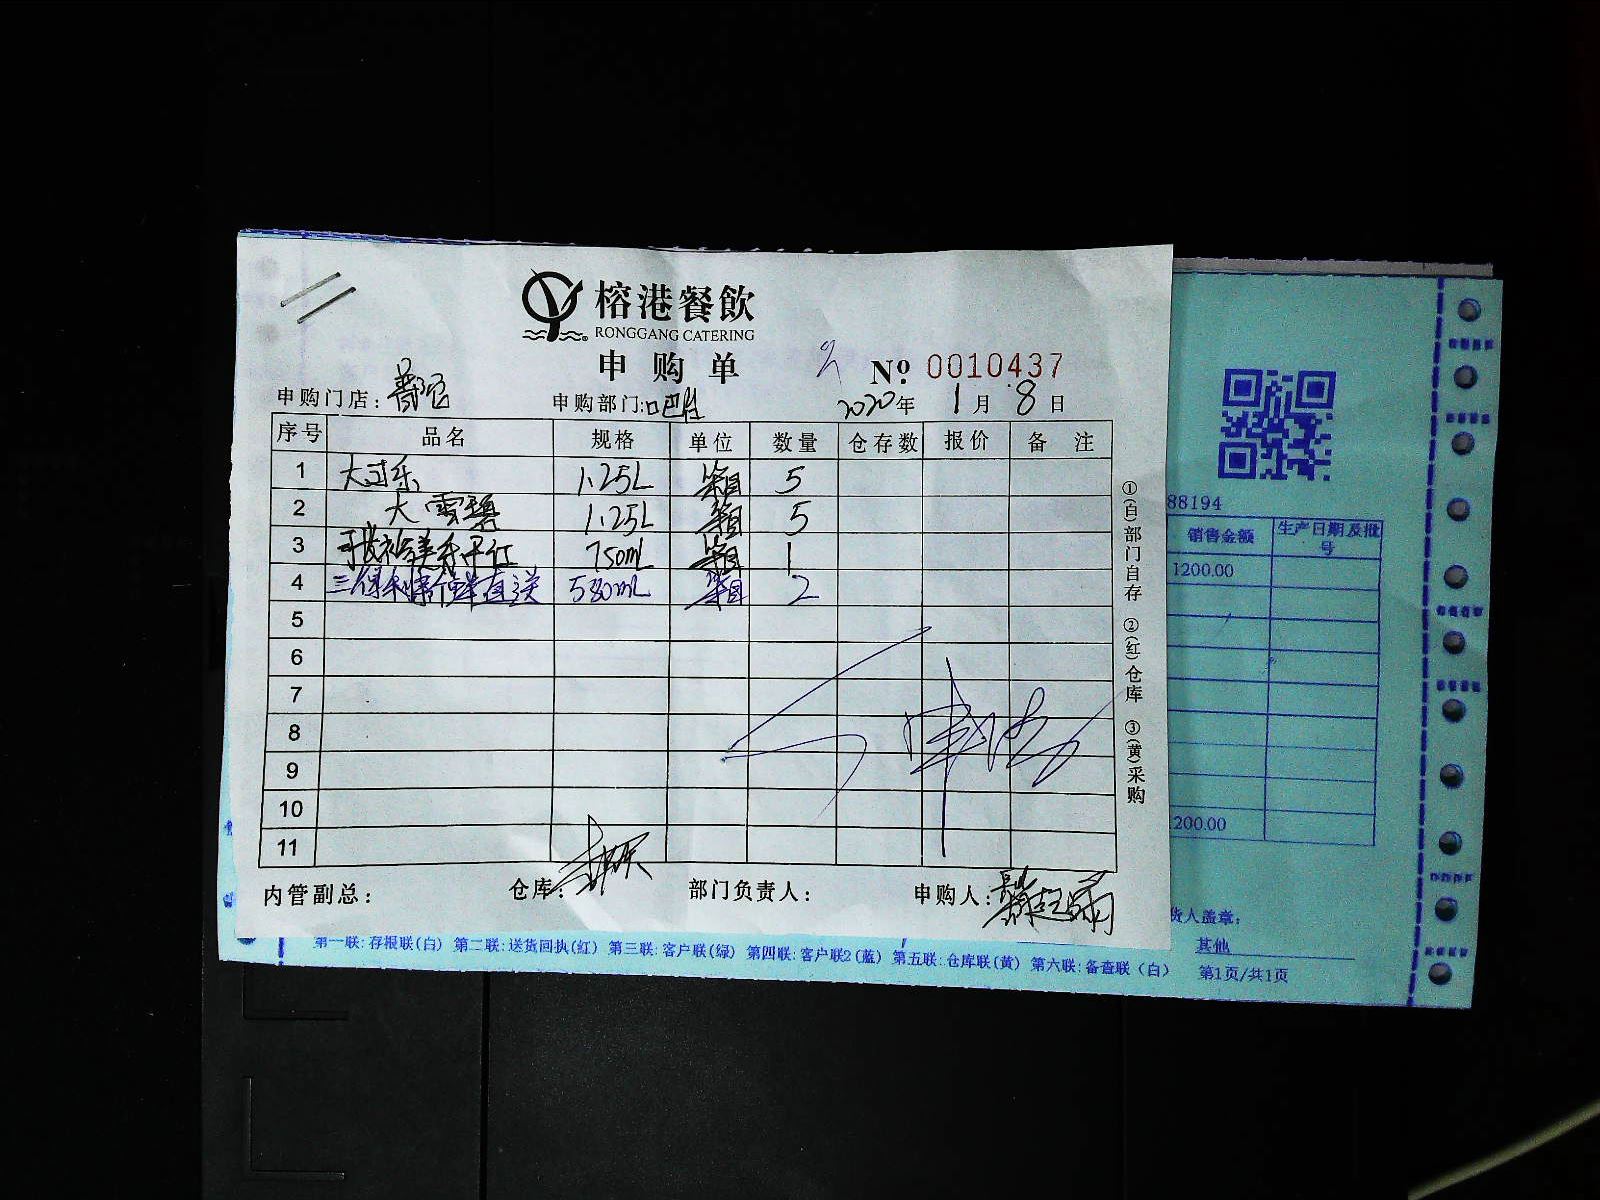 榕港餐飲
RONGGANG CATERING
申购单
№ 0010437
申购门店: 申购部门:吧台 2020年 1月 8日
序号 品名 规格 单位 数量 仓存数 报价 备注
1 大可乐 1.25L 箱 5
2 大雪碧 1.25L 箱 5
3 750ml 箱 1
4 580ml 箱 2
5
6
7
8
9
10
11
内管副总: 仓库: 部门负责人: 申购人:
①(白)部门自存 ②(红)仓库 ③(黄)采购
88194
销售金额 生产日期及批号
1200.00
200.00
货人盖章:
其他
第一联:存根联(白) 第二联:送货回执(红) 第三联:客户联(绿) 第四联:客户联2(蓝) 第五联:仓库联(黄) 第六联:备查联(白) 第1页/共1页